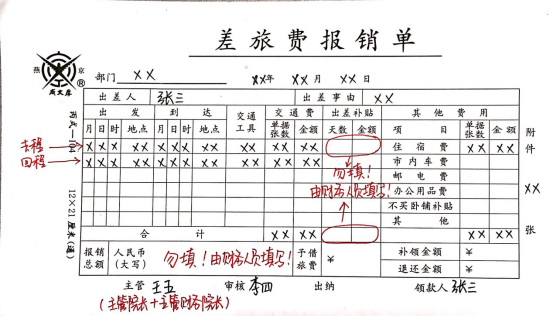 差旅费报销单
燕京
成文厚
®
部门 ×× ××年 ×× 月 ×× 日
出差人 张三 出差事由 ××
出发 到达 交通工具 交通费 出差补贴 其他费用
月 日 时 地点 月 日 时 地点 单据张数 金额 天数 金额 项目 单据张数 金额
去程 × × × ×× × × × ×× ×× ×× ×× 住宿费 ×× ××
回程 × × × ×× × × × ×× ×× ×× ×× 市内车费
勿填!
由财务人员填写!
邮电费
办公用品费
不买卧铺补贴
其他
合计 ×× ×× ×× ××
报销总额 人民币(大写) 勿填!由财务人员填写! 予借旅费 ¥ 补领金额 ¥
退还金额 ¥
主管 王五 审核 李四 出纳 领款人 张三
(主管院长+主管财务院长)
丙式—104
12×21厘米(通)
附件 ×× 张